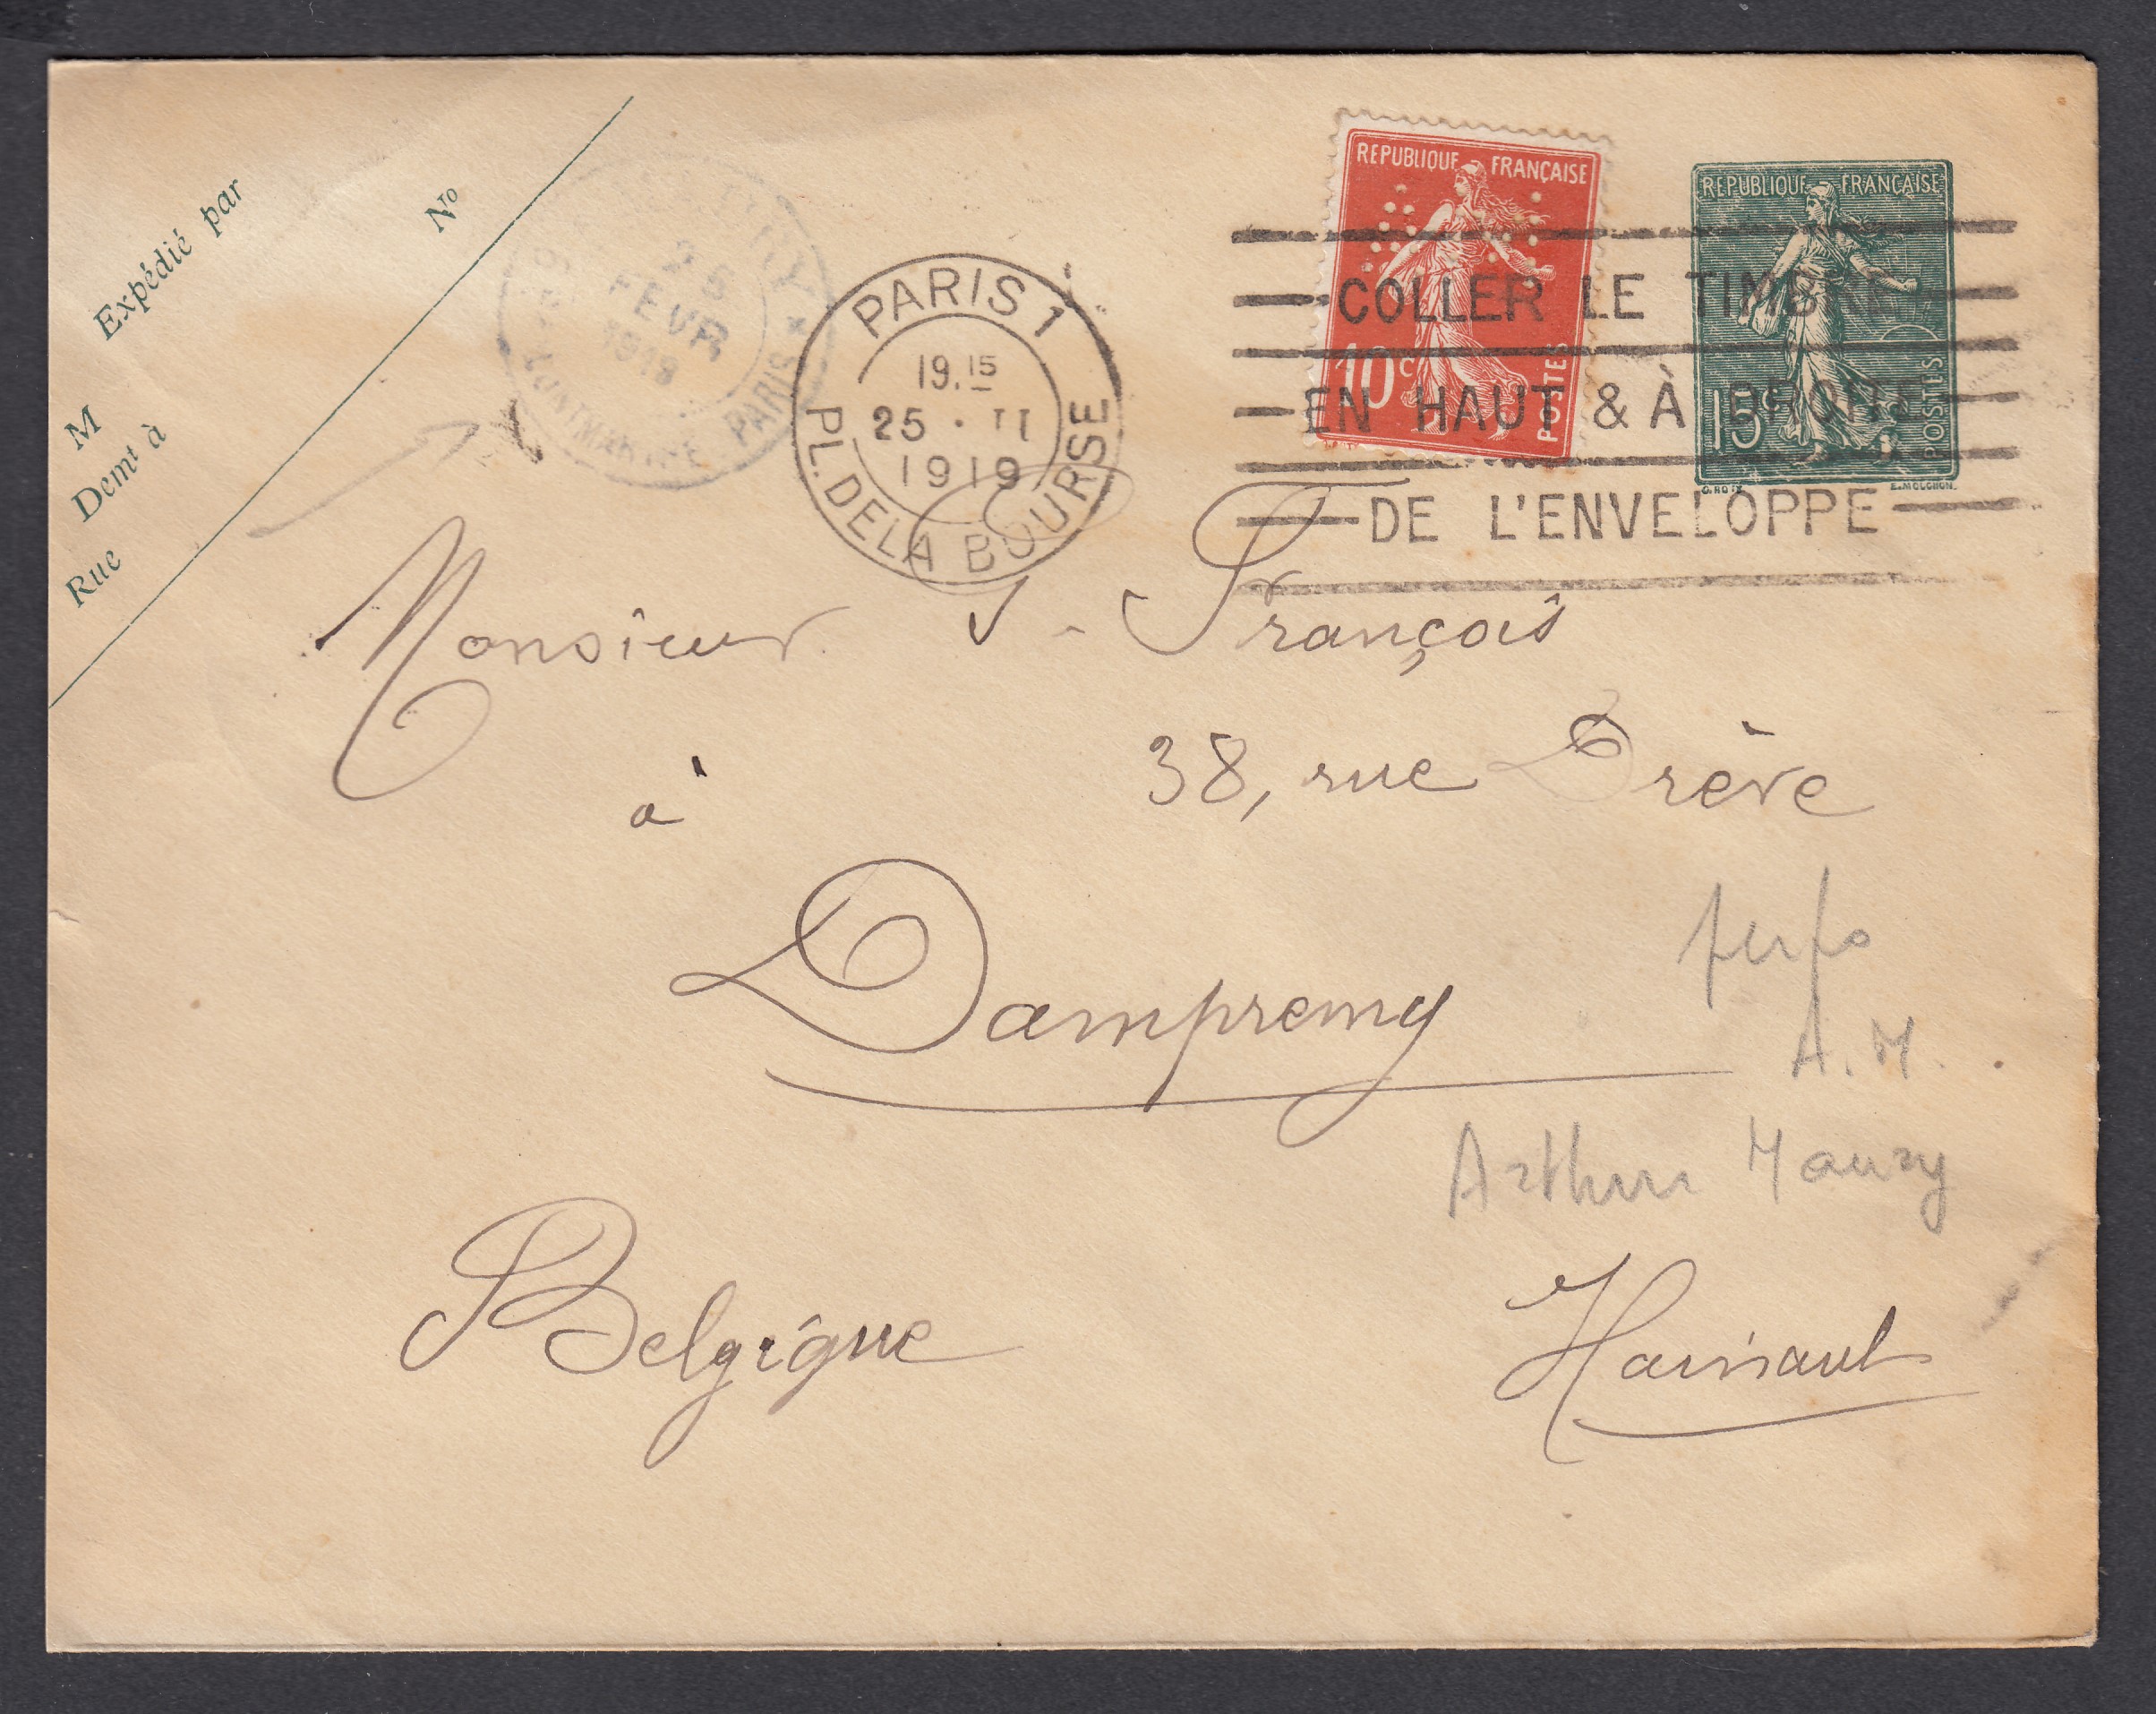 Expédié par
No
M
Demt à
Rue
25
FEVR
1919
MONTMARTRE PARIS
PARIS 1
19.15
25 · II
1919
PL. DE LA BOURSE
REPUBLIQUE FRANÇAISE
10c
POSTES
REPUBLIQUE FRANÇAISE
15c
POSTES
O. ROTY
E. MOUCHON.
COLLER LE TIMBRE
EN HAUT & À DROITE
DE L'ENVELOPPE
Monsieur J. François
38, rue Drève
à
Dampremy
perfo
A.M.
Arthur Maury
Belgique
Hainaut